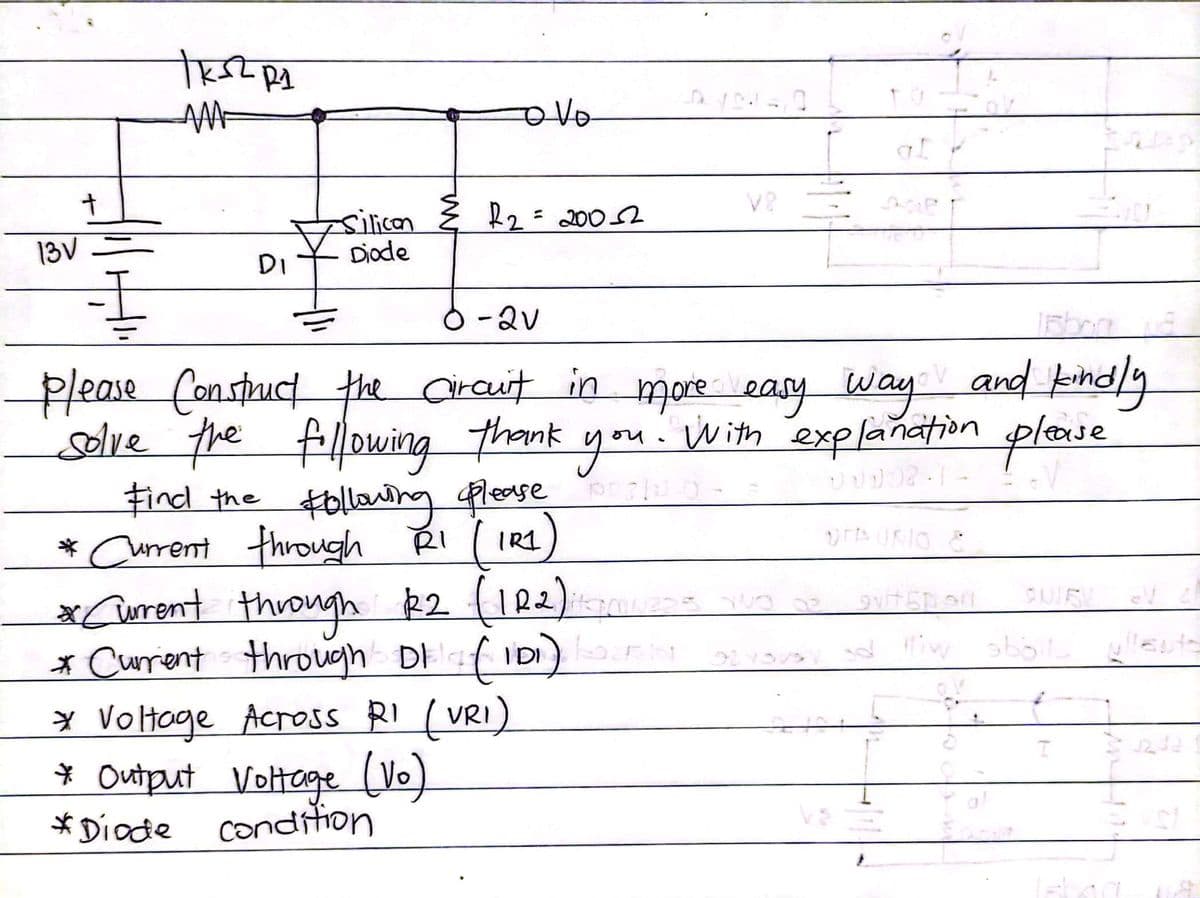 1kΩ R1
Vo
+
13V
-
D1
Silicon
Diode
R2 = 200Ω
-2V
8V
Please Construct the circuit in more easy way and kindly
solve the following thank you. With explanation please
Find the following please
* Current through R1 (IR1)
* Current through R2 (IR2)
* Current through D1 (ID1)
* Voltage Across R1 (VR1)
* Output Voltage (Vo)
* Diode condition